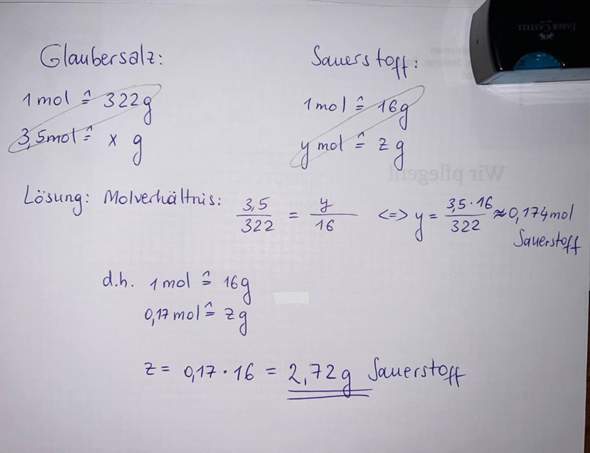 FABER CASTELL
Glaubersalz:
1 mol ≙ 322g
3,5mol ≙ x g
Sauerstoff:
1 mol ≙ 16g
y mol ≙ z g
Wir pflegen!
Lösung: Molverhältnis: 3,5/322 = y/16 <=> y = 3,5·16/322 ≈ 0,174mol
Sauerstoff
d.h. 1 mol ≙ 16g
0,17 mol ≙ z g
z = 0,17 · 16 = 2,72g Sauerstoff